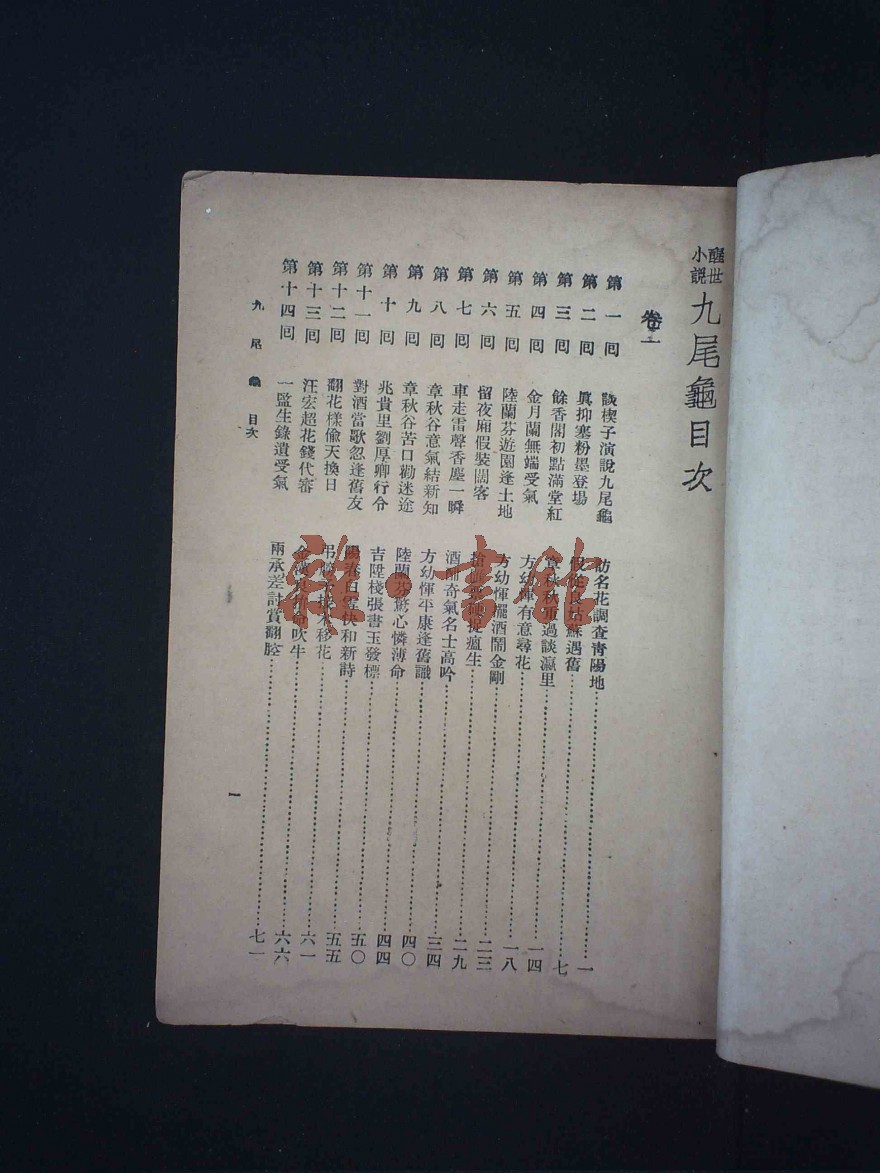 醒世小說 九尾龜目次
卷一
第一回 談楔子演說九尾龜 訪名花調查青陽地 一
第二回 眞抑塞粉墨登場 假從良姑蘇遇舊 七
第三回 餘香閣初點滿堂紅 過談瀛里 一四
第四回 金月蘭無端受氣 方幼惲有意尋花 一八
第五回 陸蘭芬遊園逢土地 方幼惲擺酒鬧金剛 二三
第六回 留夜廂假裝闊客 瘟生 二九
第七回 車走雷聲香塵一瞬 酒酣奇氣名士高吟 三四
第八回 章秋谷意氣結新知 方幼惲平康逢舊識 四〇
第九回 章秋谷苦口勸迷途 陸蘭芬驚心憐薄命 四四
第十回 兆貴里劉厚卿行令 吉陞棧張書玉發標 五〇
第十一回 對酒當歌忽逢舊友 陽春白雪快和新詩 五五
第十二回 翻花樣偷天換日 移花 六一
第十三回 汪宏超花錢代審 吹牛 六六
第十四回 一監生錄遺受氣 兩承差討賞翻腔 七一
九尾龜 目次
一
雜·書館